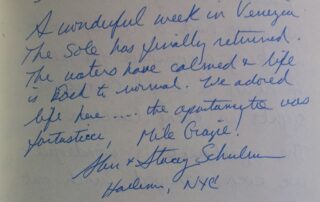 A wonderful week in Venezia
The Sole has finally returned.
The waters have calmed & life
is back to normal. We adored
life here .... the apartamento was
fantastico, Mille Grazie!
& Stacey Schulman
Harlem, NYC